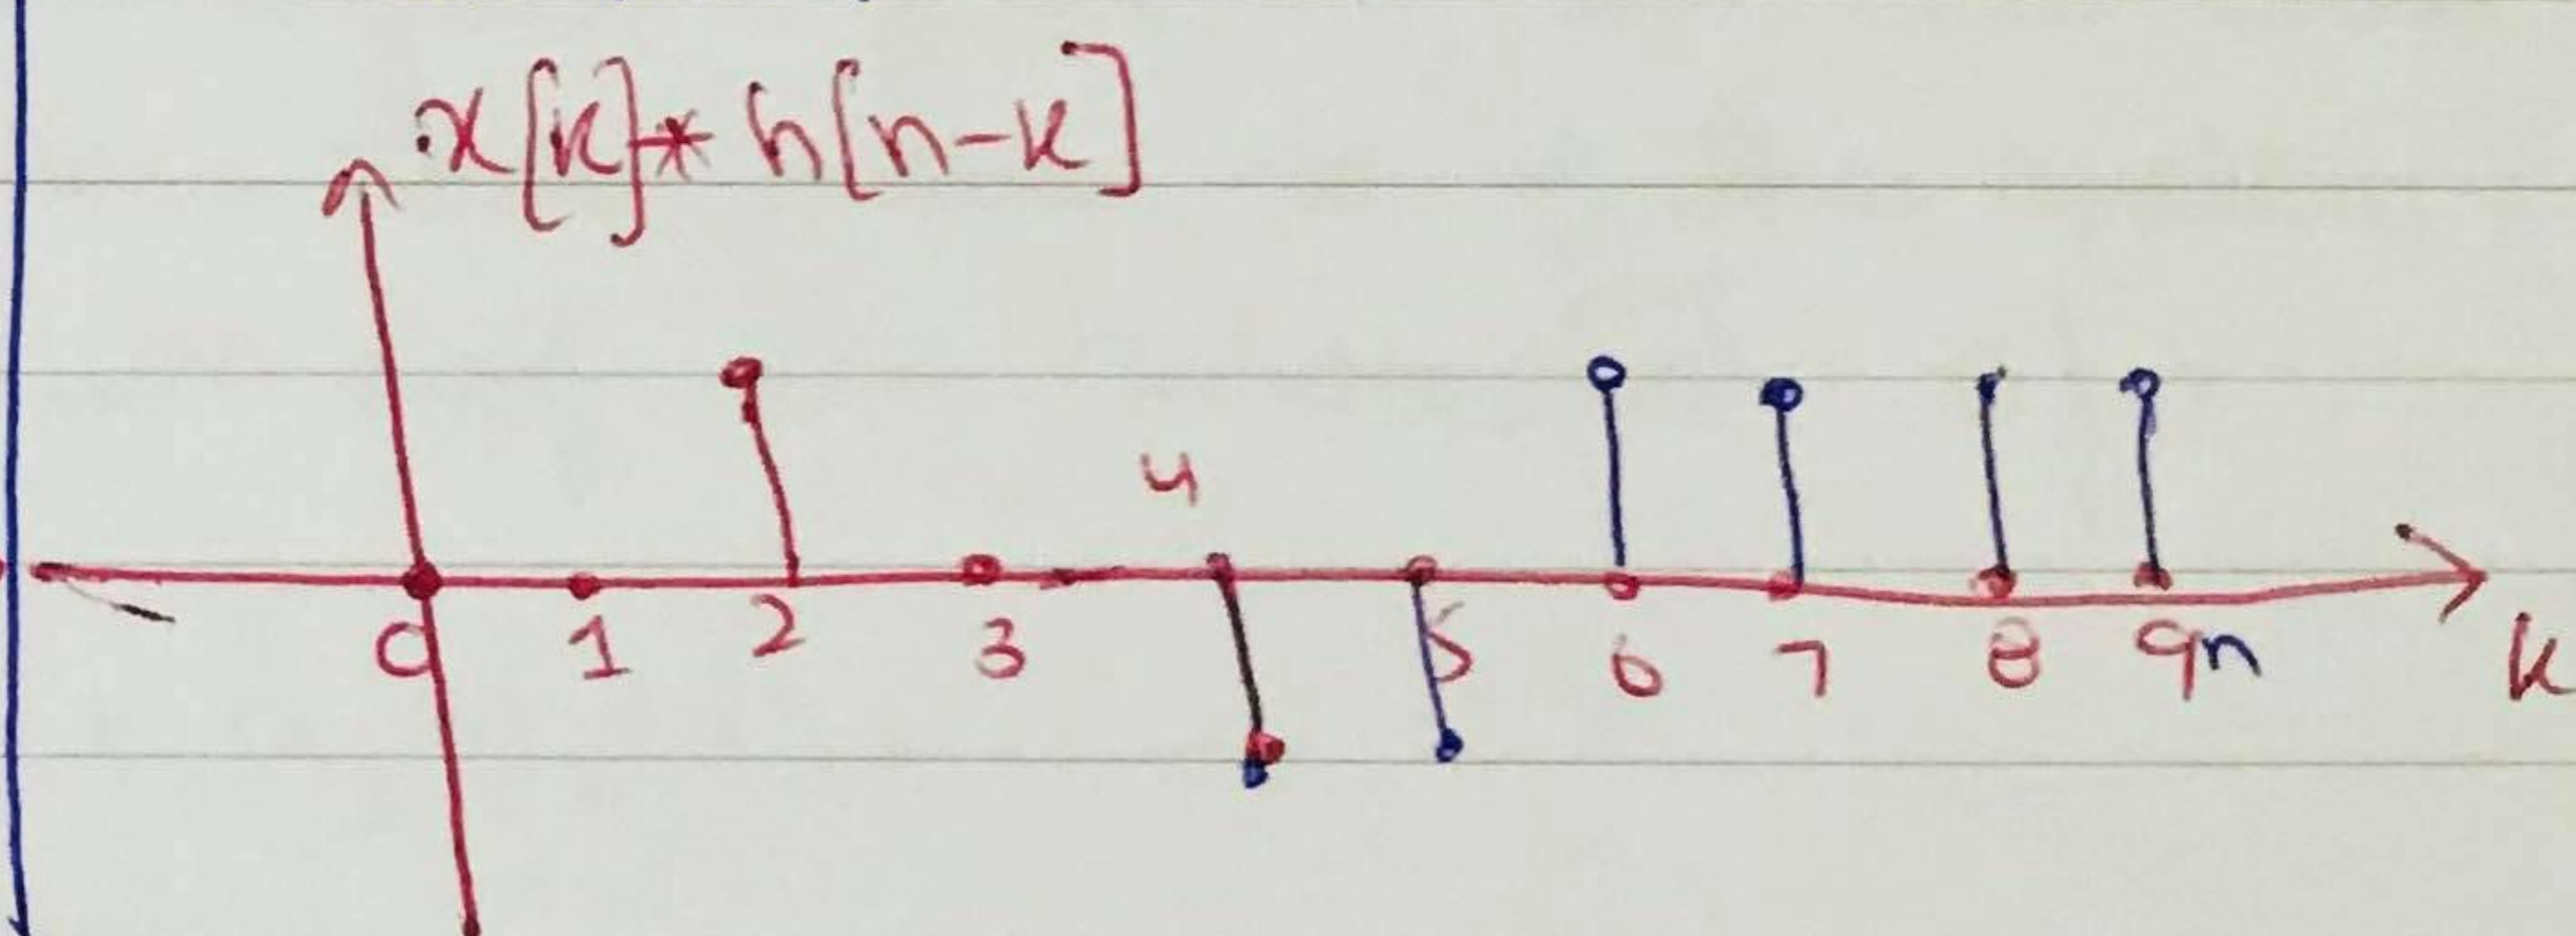 x[k]* h[n-k]
4
0 1 2 3 5 6 7 8 9n k